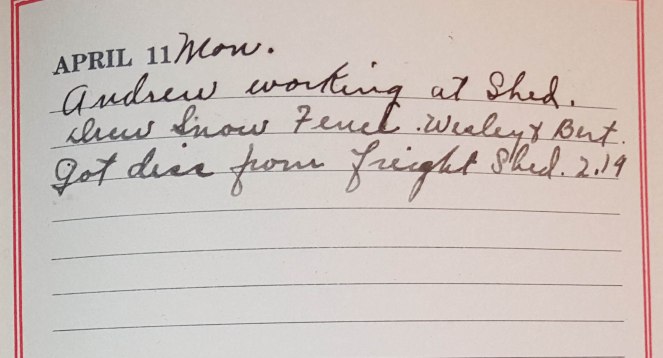 APRIL 11 Mon.
Andrew working at Shed.
drew Snow Fence. Wesley & Bert.
Got disc from freight Shed. 2.19